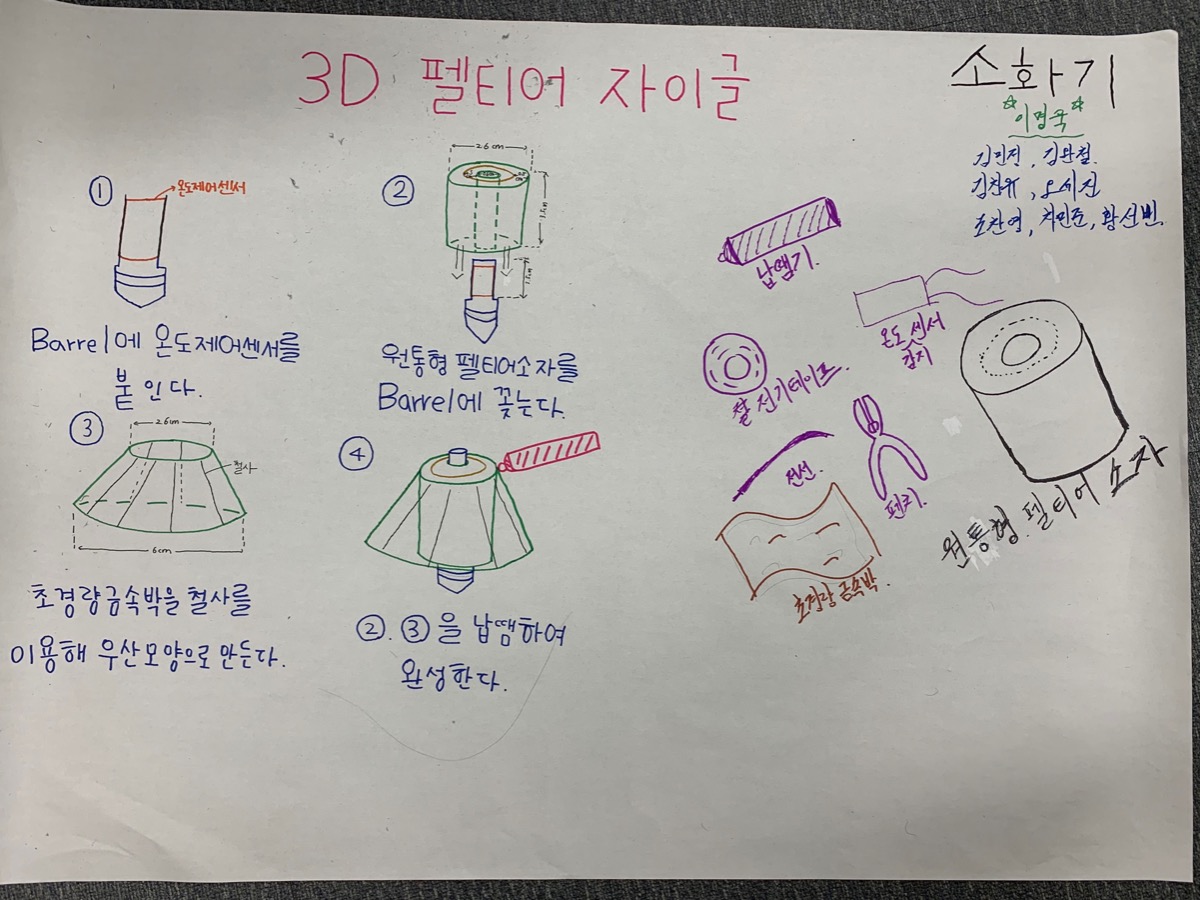 3D 펠티어 자이글
소화기
*이명국*
김민진, 김완철.
김찬유, 오세진
조찬영, 차민준, 황선빈.
①
온도제어센서
Barrel에 온도제어센서를
붙인다.
②
26cm
15cm
15cm
원통형 펠티어소자를
Barrel에 꽂는다.
③
26cm
철사
6cm
초경량금속박을 철사를
이용해 우산모양으로 만든다.
④
②. ③을 납땜하여
완성한다.
납땜기.
온도센서
감지
절전기테이프.
전선.
펜치.
초경량 금속박.
원통형.펠티어 소자